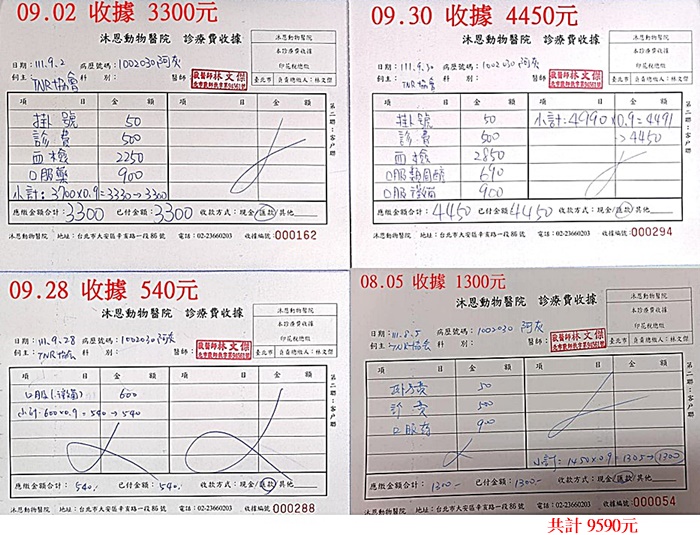 09.02 收據 3300元
沐恩動物醫院 診療費收據
沐恩動物醫院
本診療費收據
印花稅總繳
臺北市 負責總繳人：林文傑
日期：111.9.2 病歷號碼：1002030 阿灰
飼主：TNR協會 科別： 醫師：獸醫師林文傑
項目 金額 項目 金額
掛號 50
診費 500
血檢 2250
口服藥 900
小計：3700x0.9=3330→3300
應繳金額合計：3300 已付金額：3300 收款方式：現金/匯款/其他
沐恩動物醫院 地址：台北市大安區辛亥路一段86號 電話：02-23660203 收據編號：000162
第二聯：客戶聯
09.30 收據 4450元
沐恩動物醫院 診療費收據
沐恩動物醫院
本診療費收據
印花稅總繳
臺北市 負責總繳人：林文傑
日期：111.9.30 病歷號碼：1002030 阿灰
飼主：TNR協會 科別： 醫師：獸醫師林文傑
項目 金額 項目 金額
掛號 50 小計：4990x0.9=4491
診費 500 →4450
血檢 2850
口服類固醇 690
口服 900
應繳金額合計：4450 已付金額：4450 收款方式：現金/匯款/其他
沐恩動物醫院 地址：台北市大安區辛亥路一段86號 電話：02-23660203 收據編號：000294
第二聯：客戶聯
09.28 收據 540元
沐恩動物醫院 診療費收據
沐恩動物醫院
本診療費收據
印花稅總繳
臺北市 負責總繳人：林文傑
日期：111.9.28 病歷號碼：1002030 阿灰
飼主：TNR協會 科別： 醫師：獸醫師林文傑
項目 金額 項目 金額
口服 600
小計：600x0.9=540→540
應繳金額合計：540. 已付金額：540. 收款方式：現金/匯款/其他
沐恩動物醫院 地址：台北市大安區辛亥路一段86號 電話：02-23660203 收據編號：000288
第二聯：客戶聯
08.05 收據 1300元
沐恩動物醫院 診療費收據
沐恩動物醫院
本診療費收據
印花稅總繳
臺北市 負責總繳人：林文傑
日期：111.8.5 病歷號碼：1002030 阿灰
飼主：TNR協會 科別： 醫師：獸醫師林文傑
項目 金額 項目 金額
掛號費 50
診費 500
口服藥 900
小計：1450x0.9=1305→1300
應繳金額合計：1300- 已付金額：1300- 收款方式：現金/匯款/其他
沐恩動物醫院 地址：台北市大安區辛亥路一段86號 電話：02-23660203 收據編號：000054
第二聯：客戶聯
共計 9590元